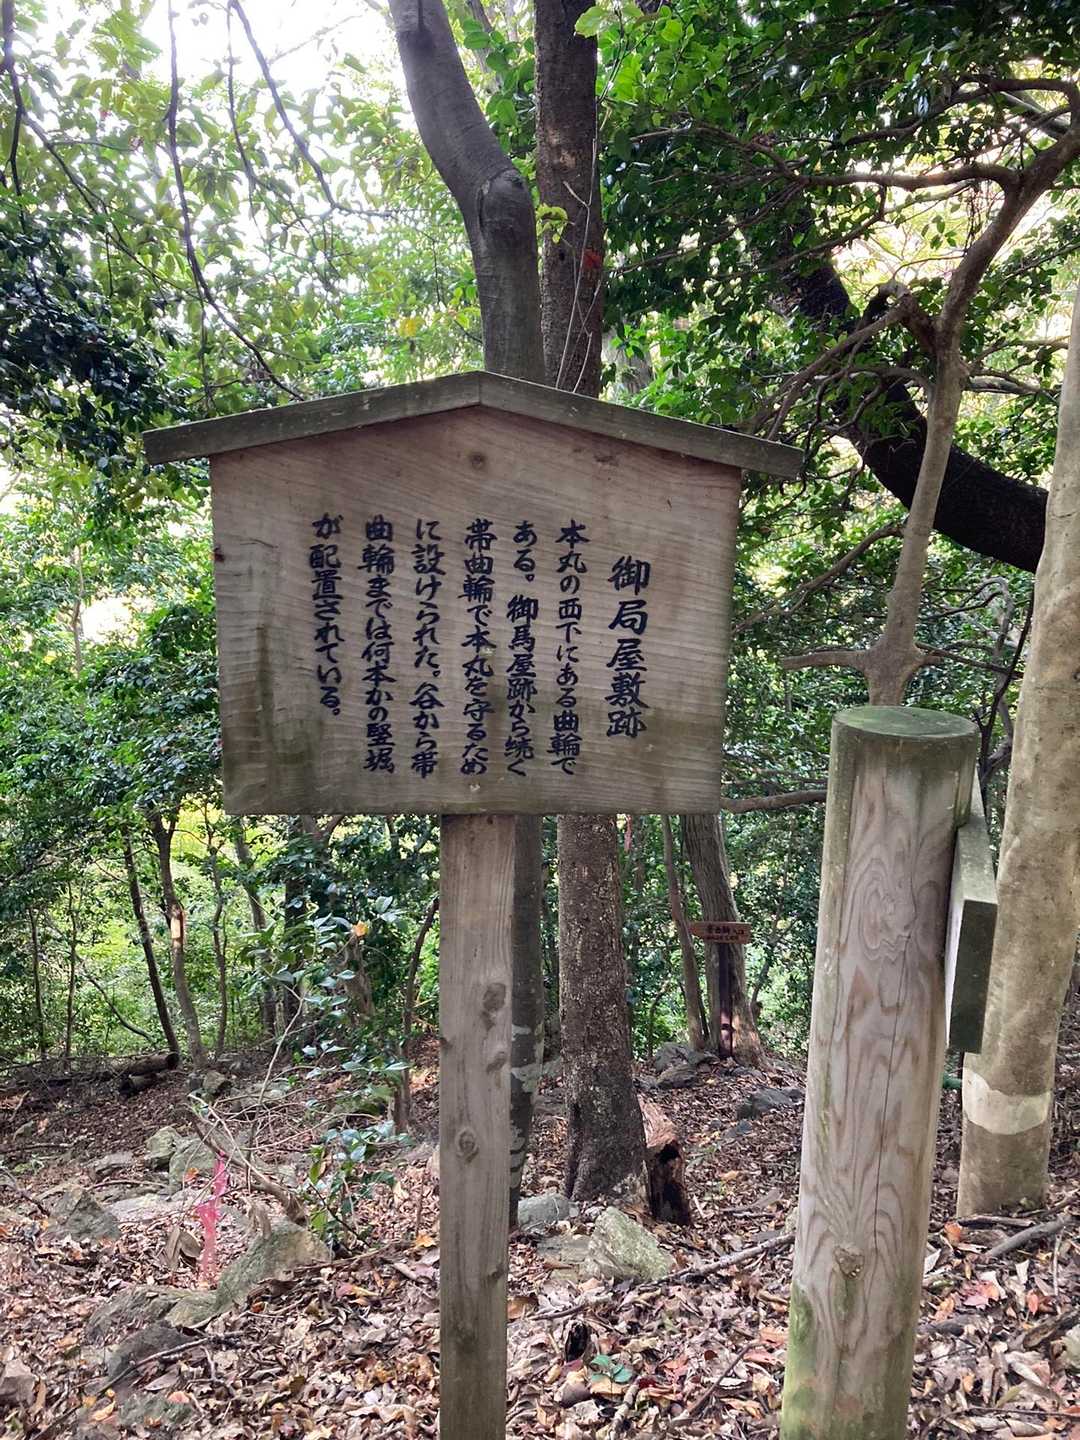 御局屋敷跡
本丸の西下にある曲輪で
ある。御馬屋跡から続く
帯曲輪で本丸を守るため
に設けられた。谷から帯
曲輪までは何本かの竪堀
が配置されている。